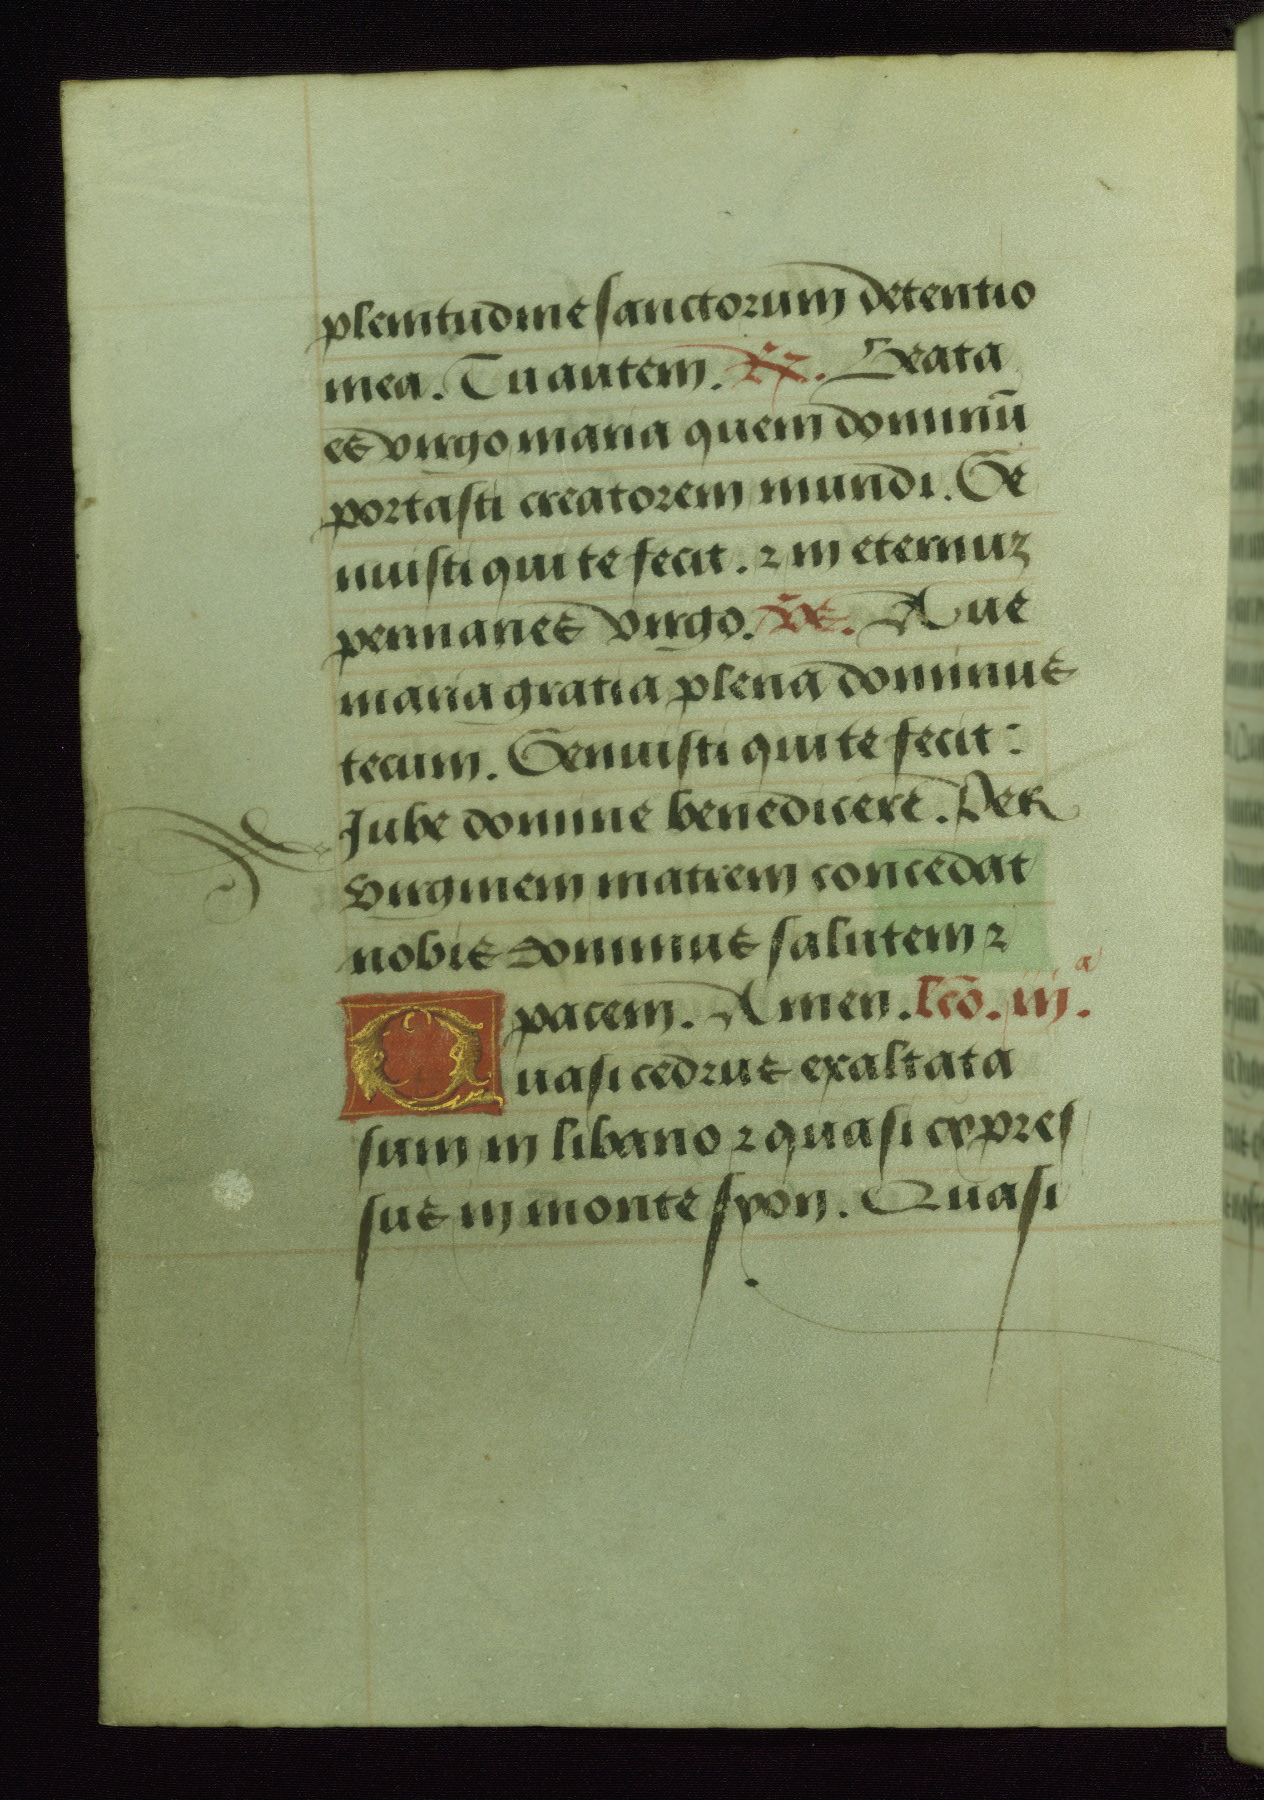 plenitudine sanctorum detentio
mea. Tu autem. R. Beata
es virgo maria quem dominū
portasti creatorem mundi. Ge
nuisti qui te fecit. ⁊ in eternuꝫ
permanes virgo. V̄s. Aue
maria gratia plena dominus
tecum. Genuisti qui te fecit:
Jube domine benedicere. Per
virginem matrem concedat
nobis dominus salutem ⁊
pacem. Amen. Lcō. iijᵃ.
Quasi cedrus exaltata
sum in libano ⁊ quasi cypres
sus in monte syon. Quasi